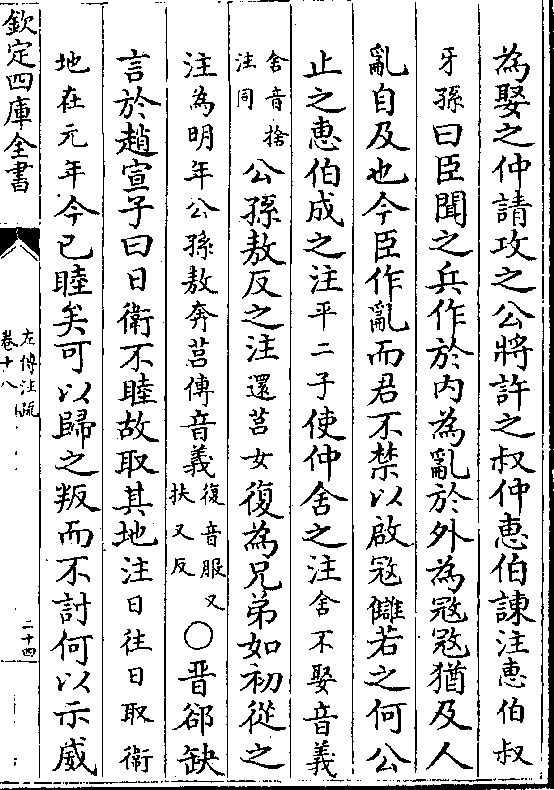 為娶之仲請攻之公將許之叔仲惠伯諫注惠伯叔
牙孫曰臣聞之兵作於內為亂於外為㓂㓂猶及人
亂自及也今臣作亂而君不禁以啟㓂讎若之何公
止之惠伯成之注平二子使仲舍之注舍不娶音義
舍音捨
注同
公孫敖反之注還莒女復為兄弟如初從之
注為明年公孫敖奔莒傳音義
復音服又
扶又反
○晉郤缺
言於趙宣子曰日衛不睦故取其地注日往日取衛
地在元年今已睦矣可以歸之叛而不討何以示威
欽定四庫全書
左傳注疏
卷十八
二十四